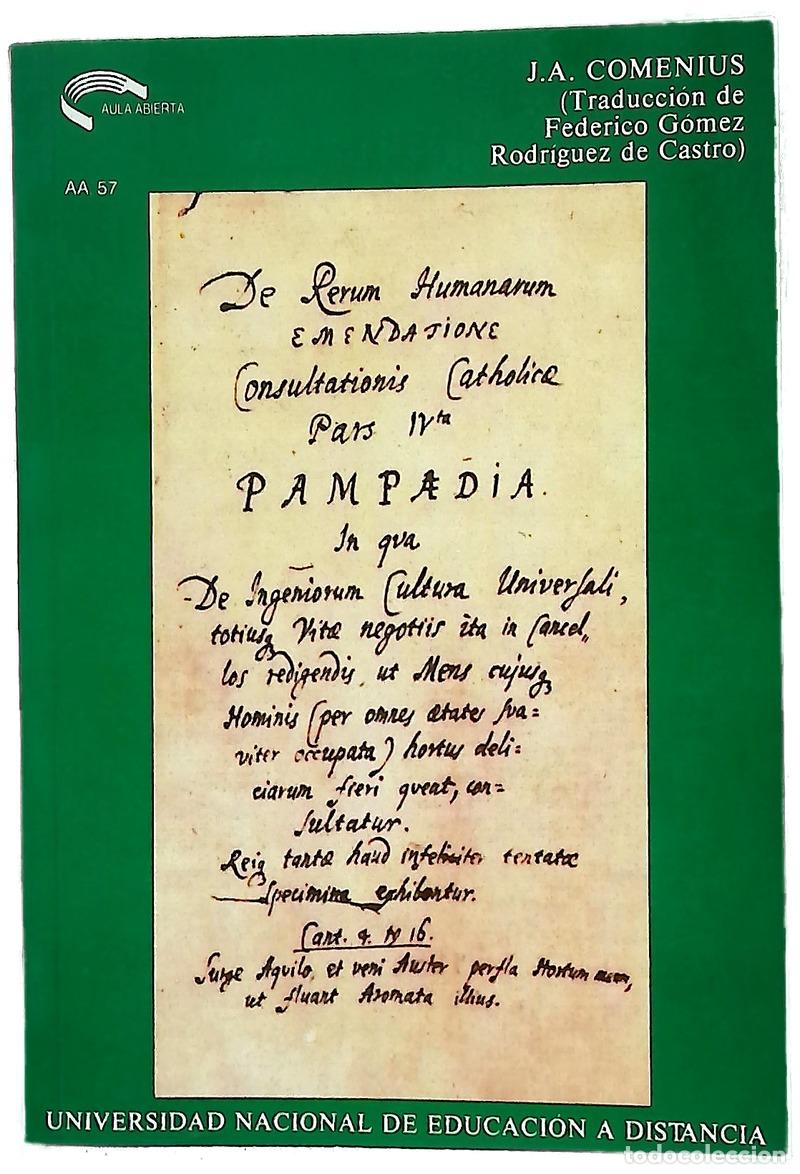 AULA ABIERTA
AA 57
J.A. COMENIUS
(Traducción de
Federico Gómez
Rodríguez de Castro)
De Rerum Humanarum
EMENDATIONE
Consultationis Catholicæ
Pars IVta
PAMPÆDIA.
In qva
De Ingeniorum Cultura Universali,
totiusq Vitæ negotiis ita in Cancel„
los redigendis, ut Mens cujusq
Hominis (per omnes ætates sva=
viter occupata) hortus deli=
ciarum fieri qveat, con=
sultatur.
Reiq tantæ haud infeliciter tentatæ
specimina exhibentur.
Cant. 4. 16.
Surge Aqvilo, et veni Auster perfla Hortum
ut fluant Aromata illius.
UNIVERSIDAD NACIONAL DE EDUCACIÓN A DISTANCIA
todocoleccion